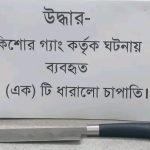 উদ্ধার-
কিশোর গ্যাং কর্তৃক ঘটনায়
ব্যবহৃত
(এক) টি ধারালো চাপাতি।